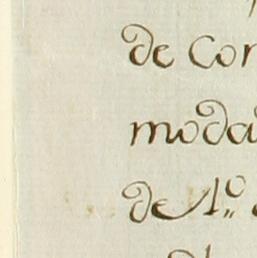 de Con
moda
de A.º